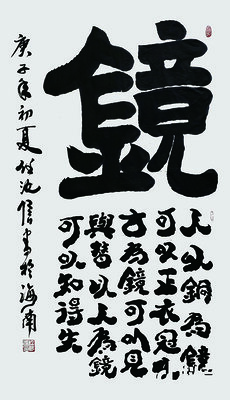 鏡
人以銅為鏡
可以正衣冠以
古為鏡可以見
興替以人為鏡
可以知得失
庚子年初夏沈信書於海南